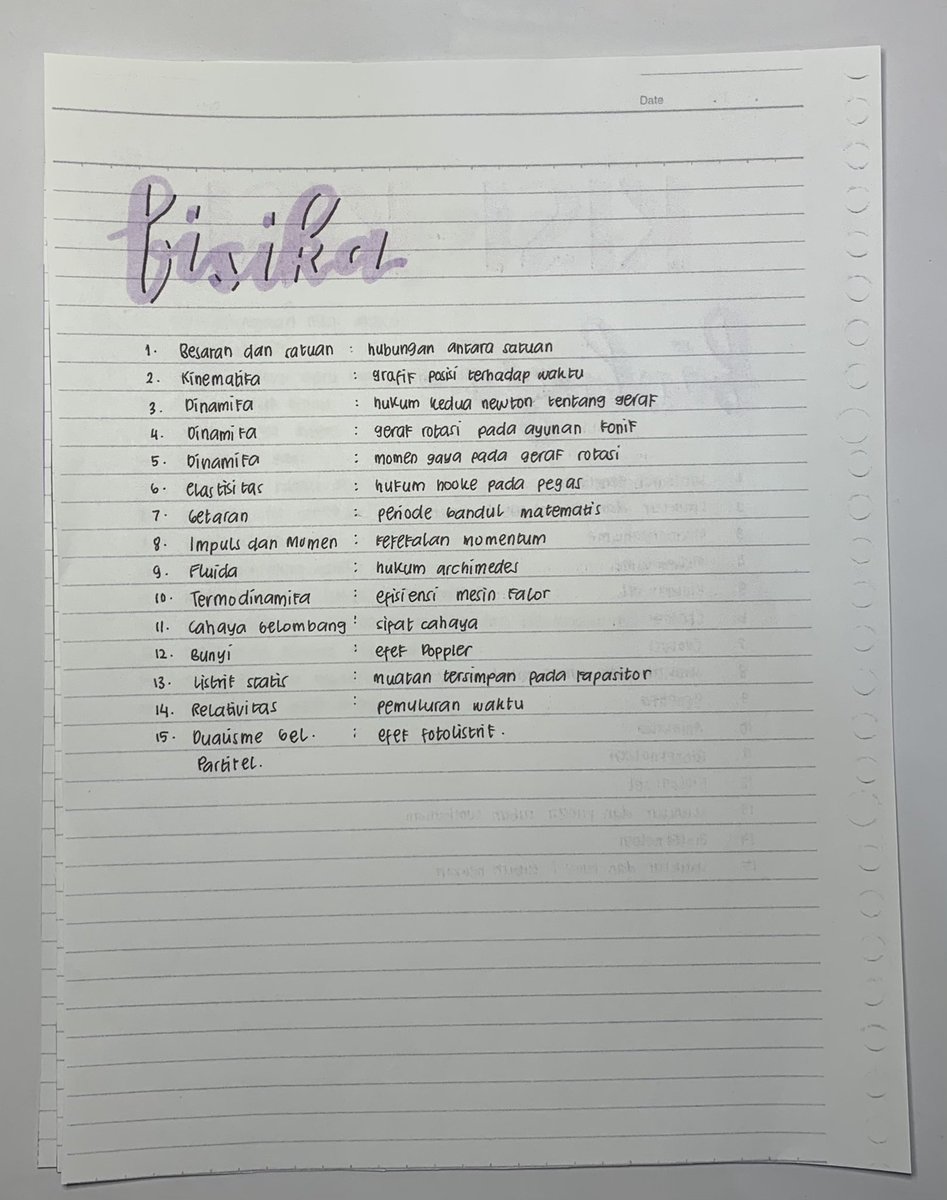 Date
fisika
1. Besaran dan satuan : hubungan antara satuan
2. Kinematika : grafik posisi terhadap waktu
3. Dinamika : hukum kedua newton tentang gerak
4. Dinamika : gerak rotasi pada ayunan konik
5. Dinamika : momen gaya pada gerak rotasi
6. elastisitas : hukum hooke pada pegas
7. Getaran : periode bandul matematis
8. Impuls dan Momen : kekekalan momentum
9. Fluida : hukum archimedes
10. Termodinamika : efisiensi mesin kalor
11. Cahaya Gelombang : sifat cahaya
12. Bunyi : efek Doppler
13. Listrik statis : muatan tersimpan pada kapasitor
14. Relativitas : pemuluran waktu
15. Dualisme Gel. : efek fotolistrik.
Partikel.